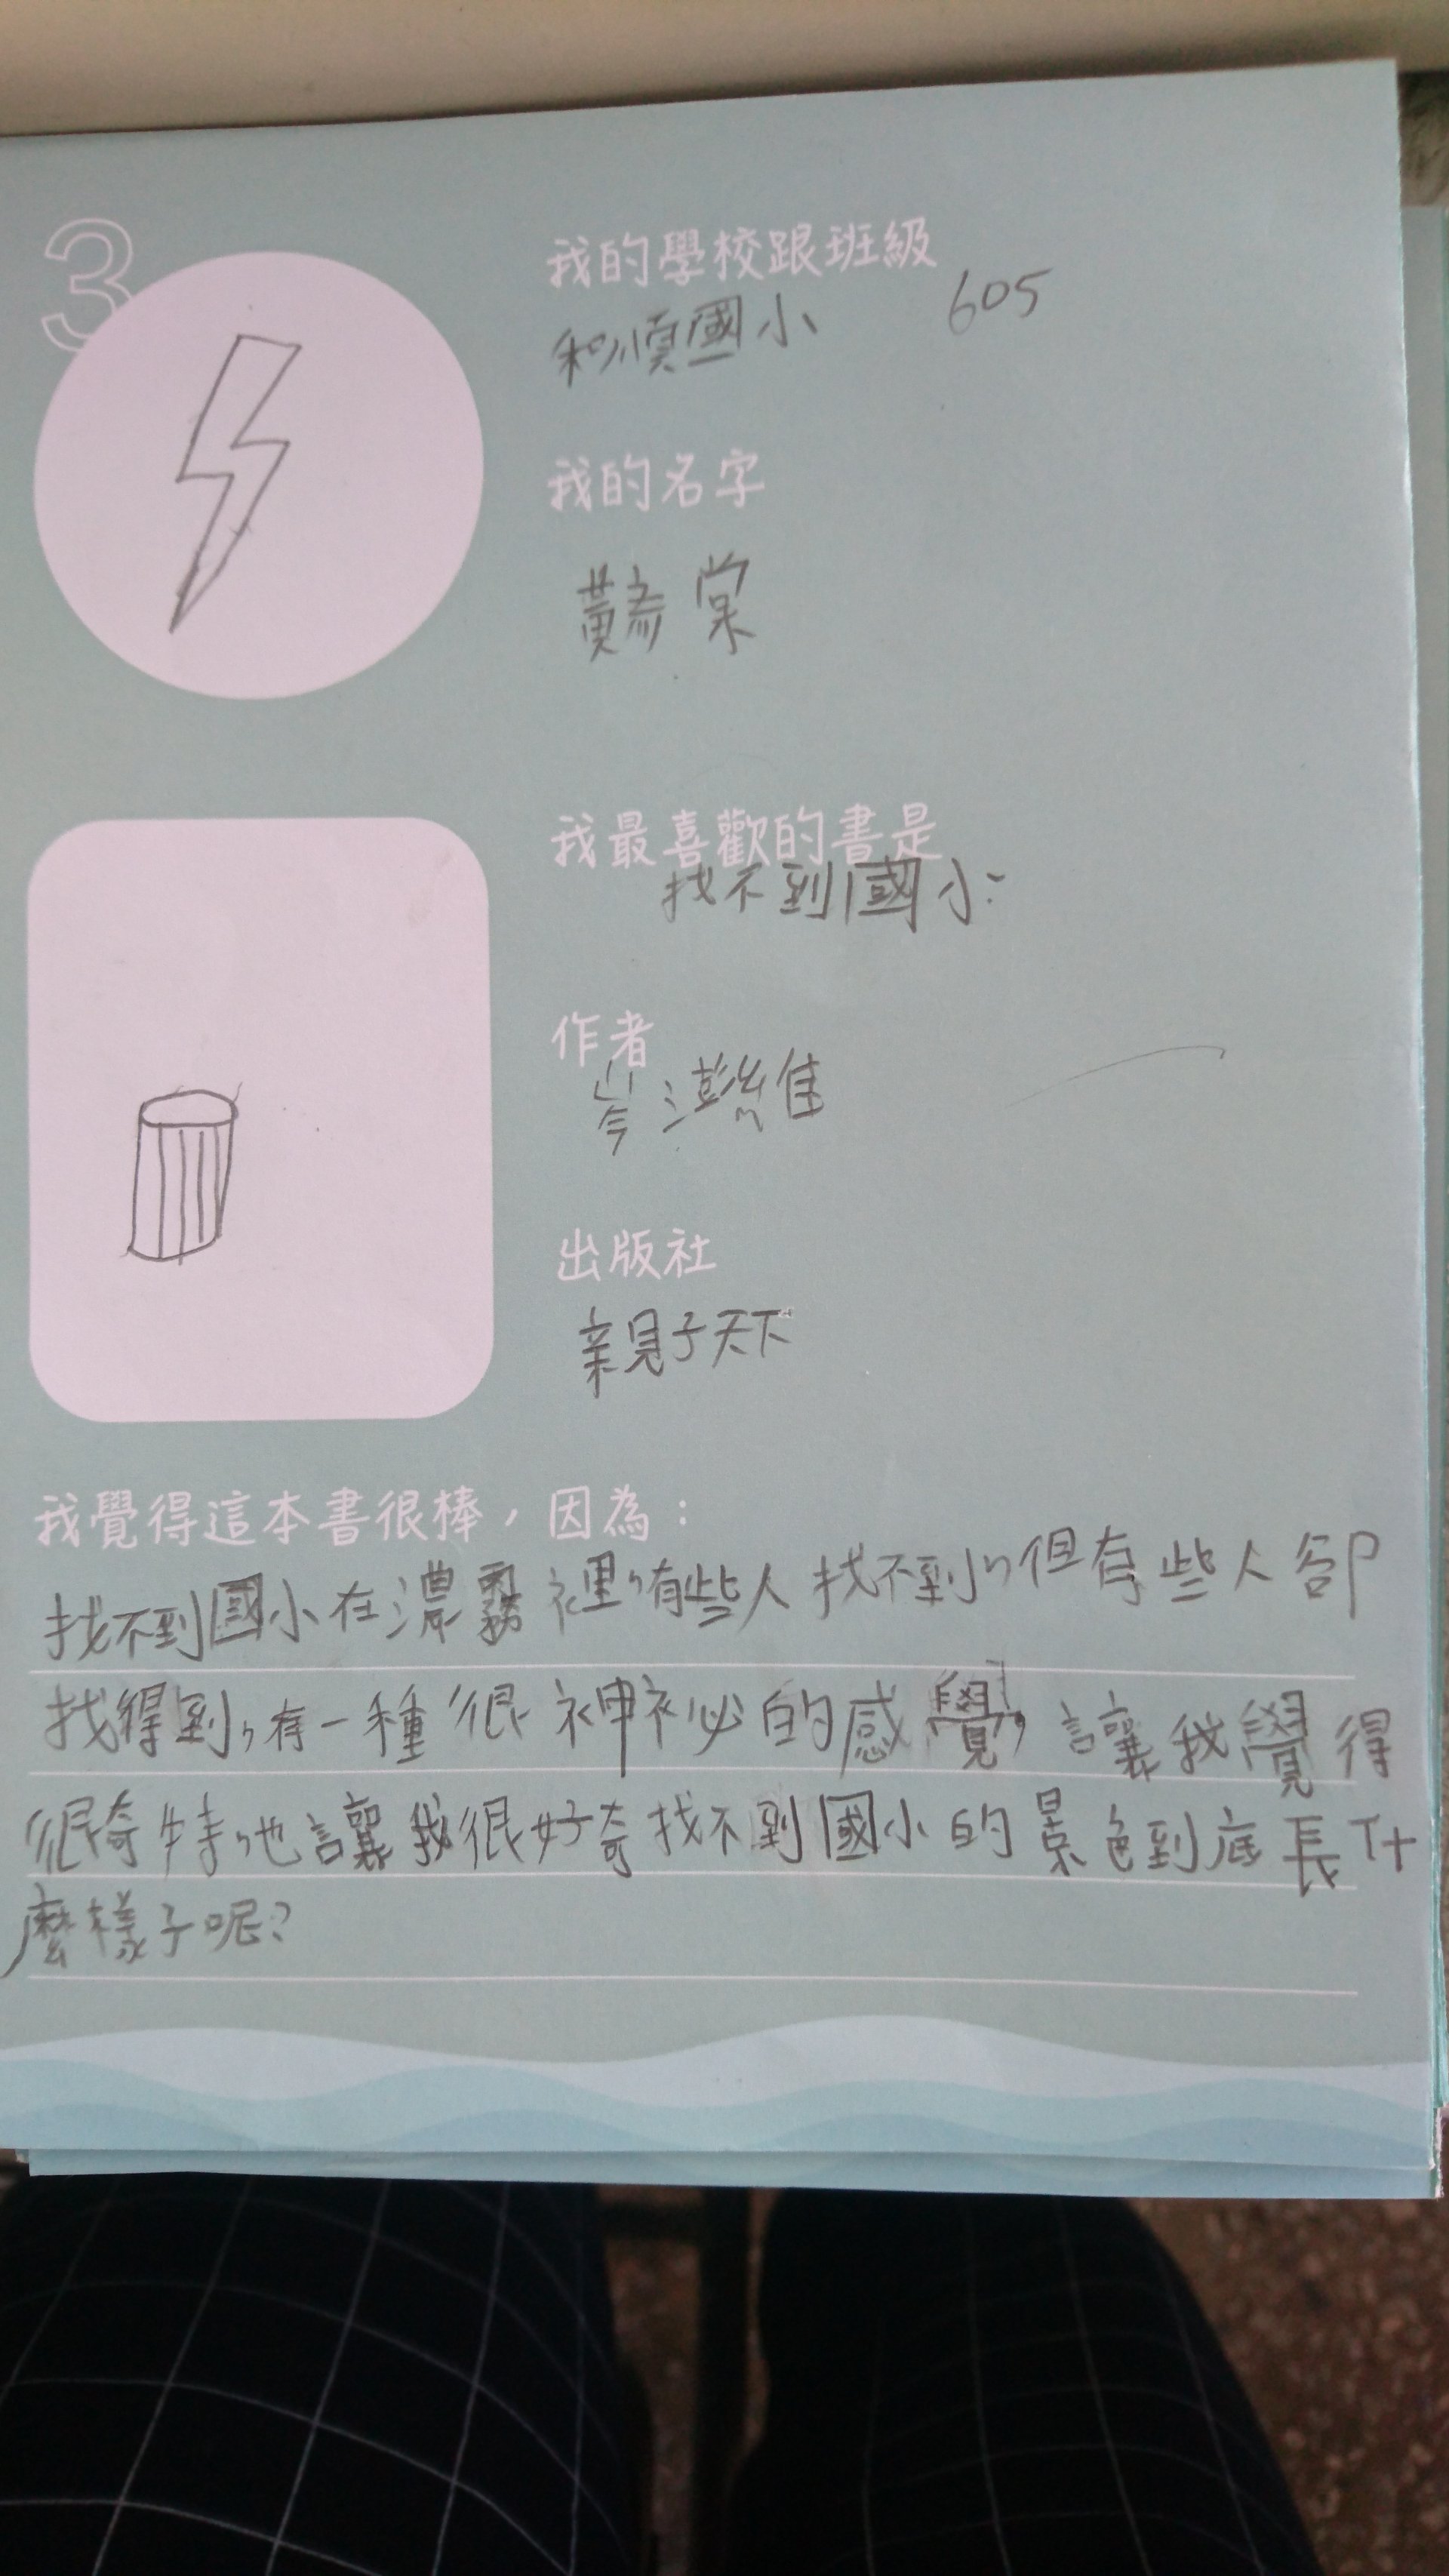 3
我的學校跟班級
和順國小 605
我的名字
黃彥棠
我最喜歡的書是
找不到國小
作者
岑澎維
出版社
親子天下
我覺得這本書很棒，因為：
找不到國小在濃霧裡，有些人找不到，但有些人卻
找得到，有一種很神祕的感覺，讓我覺得
很奇特，也讓我很好奇找不到國小的景色到底長什
麼樣子呢？